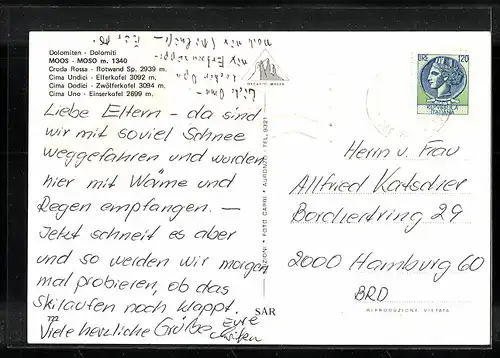 Dolomiten - Dolomiti
MOOS - MOSO m. 1340
Croda Rossa - Rotwand Sp. 2939 m.
Cima Undici - Elferkofel 3092 m.
Cima Dodici - Zwölferkofel 3094 m.
Cima Uno - Einserkofel 2699 m.
Liebe Eltern - da sind
wir mit soviel Schnee
weggefahren und wurden
hier mit Wärme und
Regen empfangen. —
Jetzt schneit es aber
und so werden wir morgen
mal probieren, ob das
Skilaufen noch klappt.
Viele herzliche Grüße Eure
772
SAR
EDIZIONI - FOTO GARRI - AURONZO - TEL. 9321
LIRE 120
Herrn u. Frau
Allfried Katschier
Borchertring 29
2000 Hamburg 60
BRD
RIPRODUZIONE VIETATA